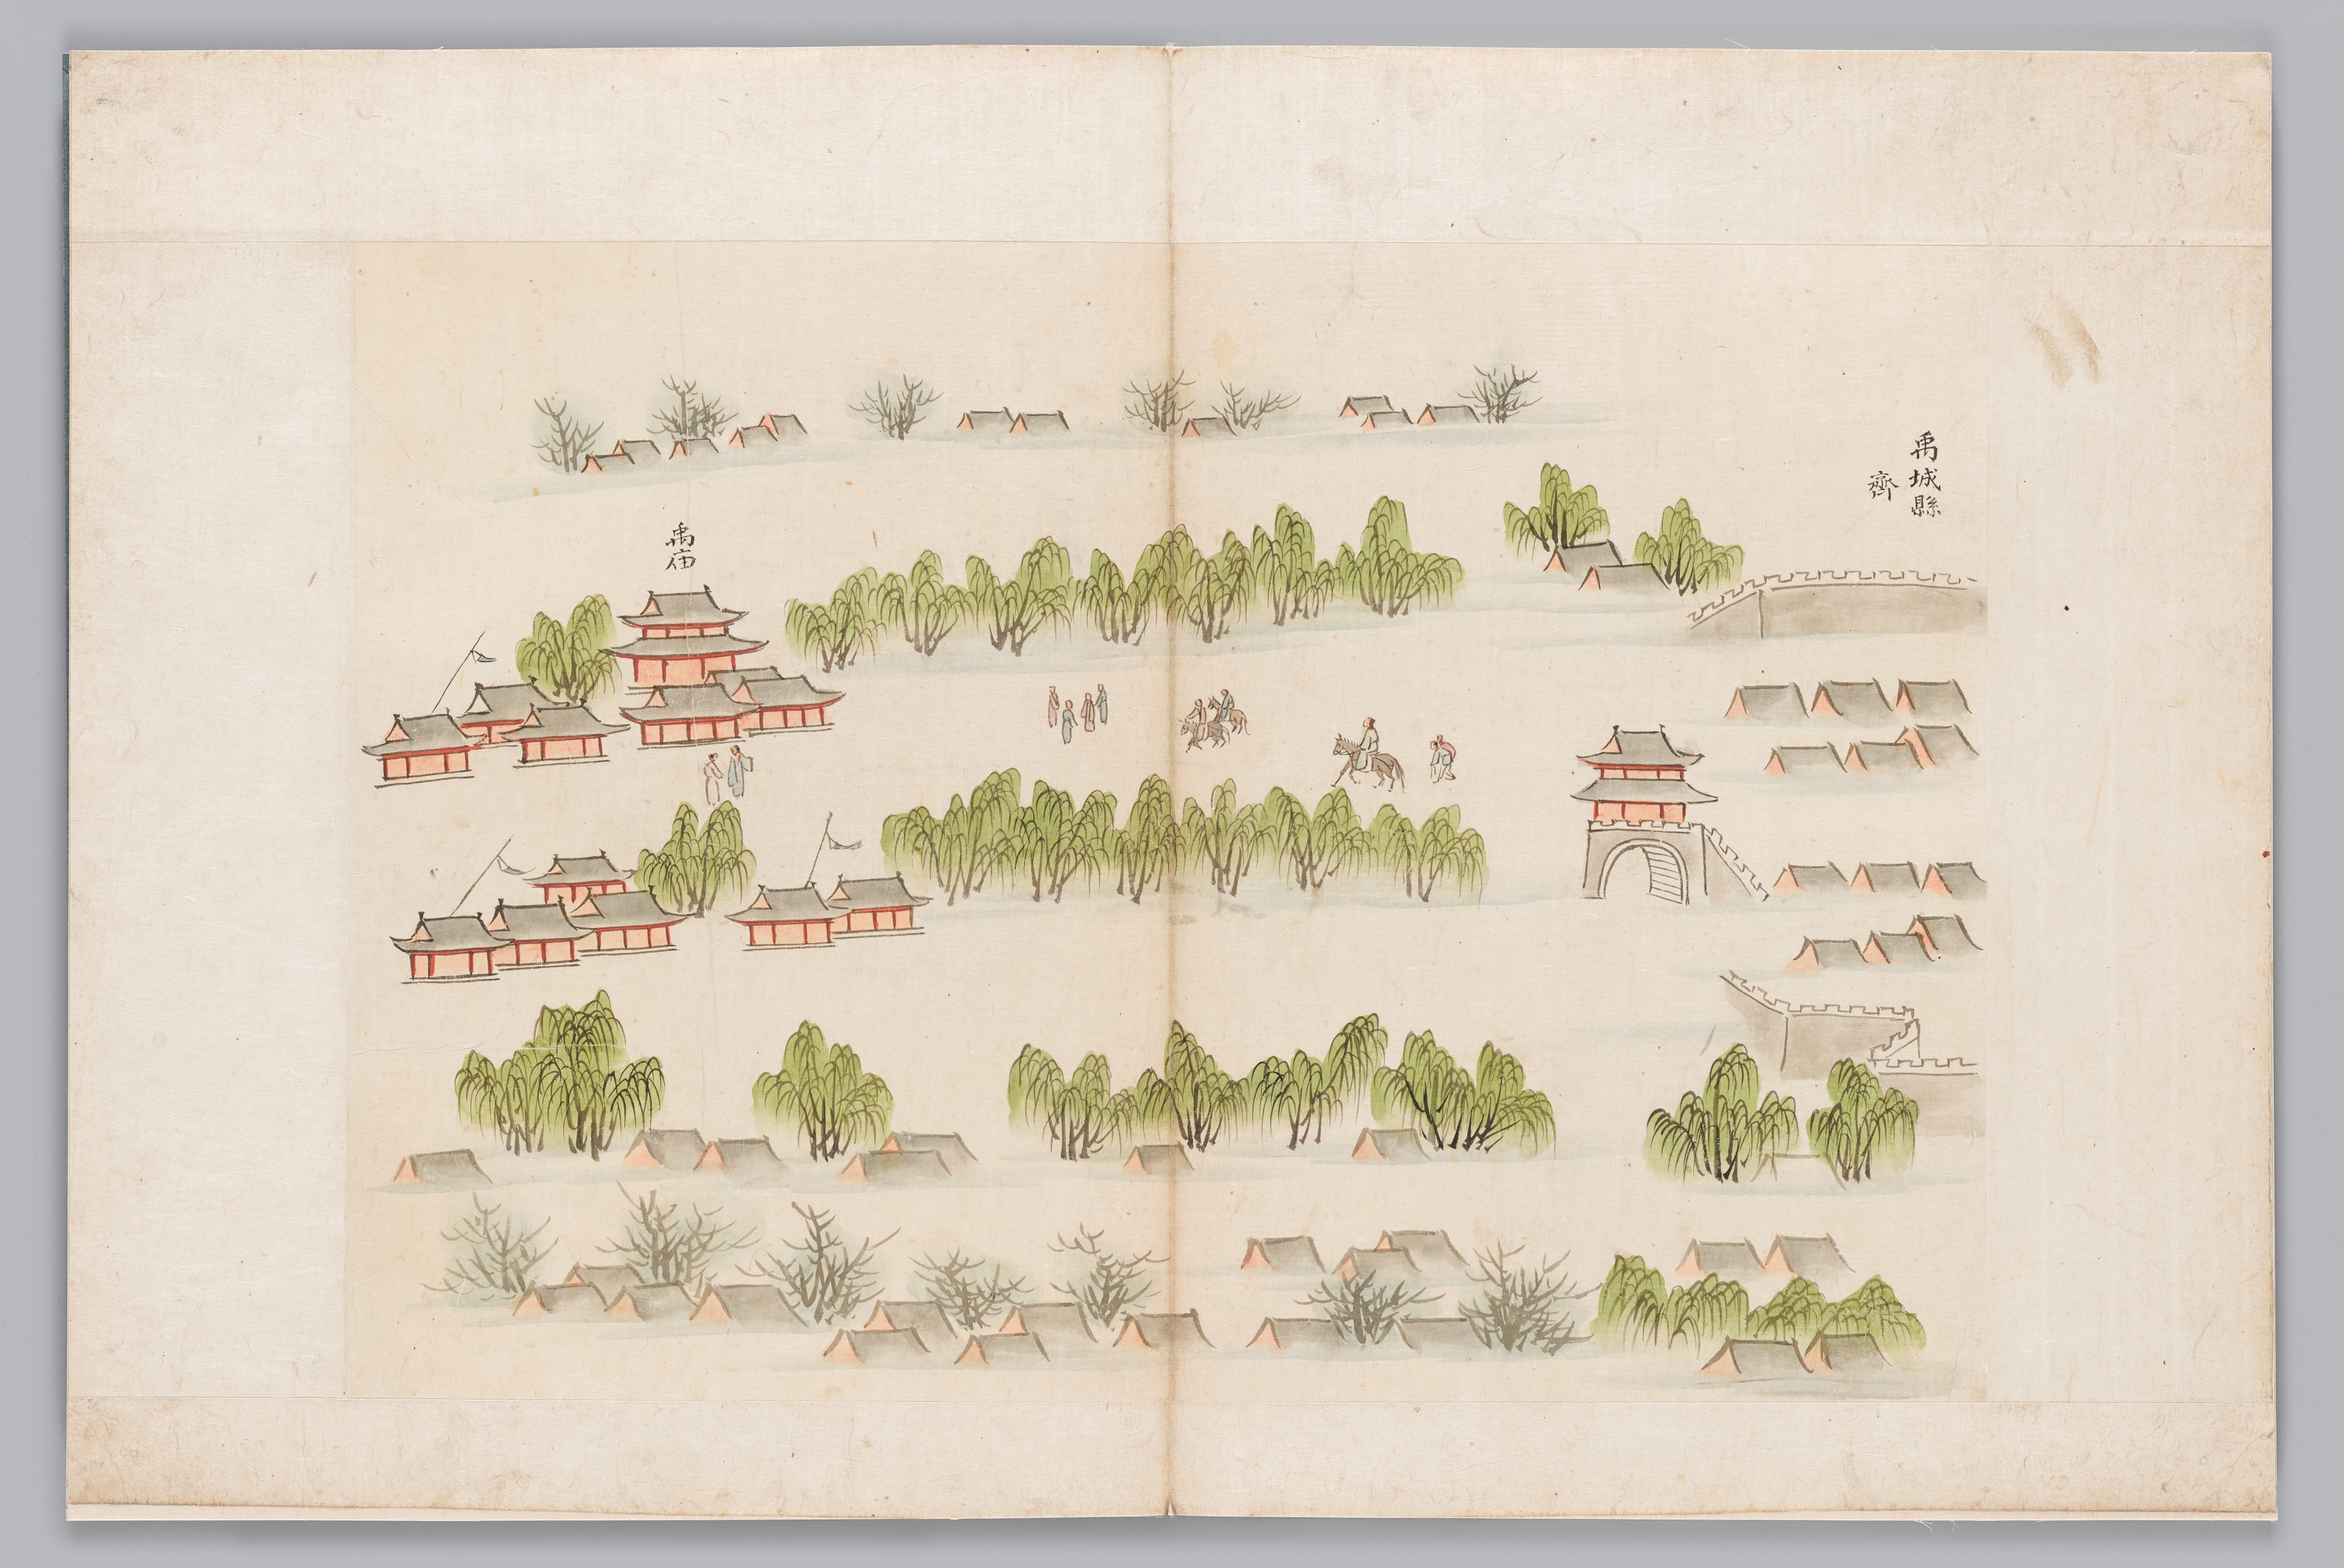 禹城縣
齊
禹庙